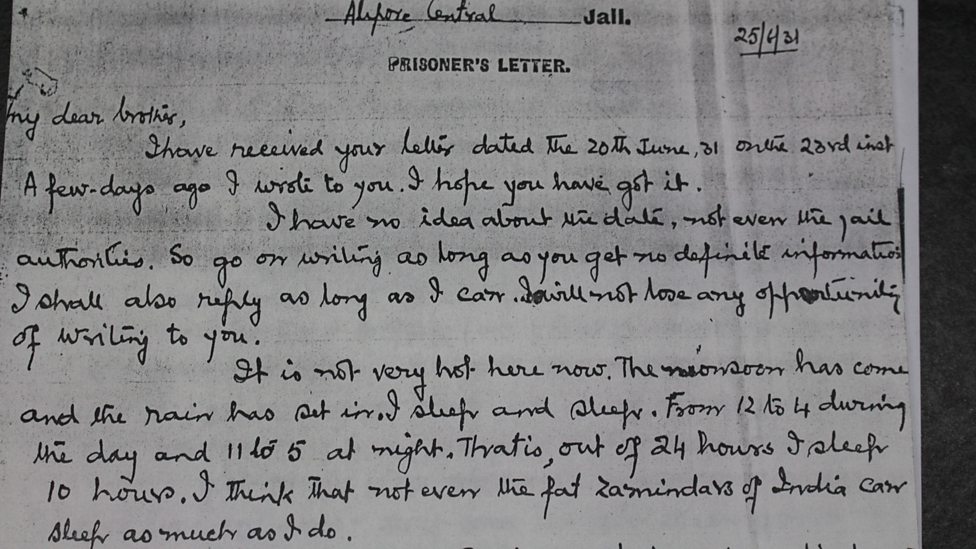 Alipore Central Jail.
25/6/31
PRISONER'S LETTER.
my dear brother,
I have received your letter dated the 20th June, 31 on the 23rd inst
A few-days ago I wrote to you. I hope you have got it.
I have no idea about the date, not even the jail
authorities. So go on writing as long as you get no definite information
I shall also reply as long as I can. I will not lose any opportunity
of writing to you.
It is not very hot here now. The monsoon has come
and the rain has set in. I sleep and sleep. From 12 to 4 during
the day and 11 to 5 at night. That is, out of 24 hours I sleep
10 hours. I think that not even the fat Zamindars of India can
sleep as much as I do.